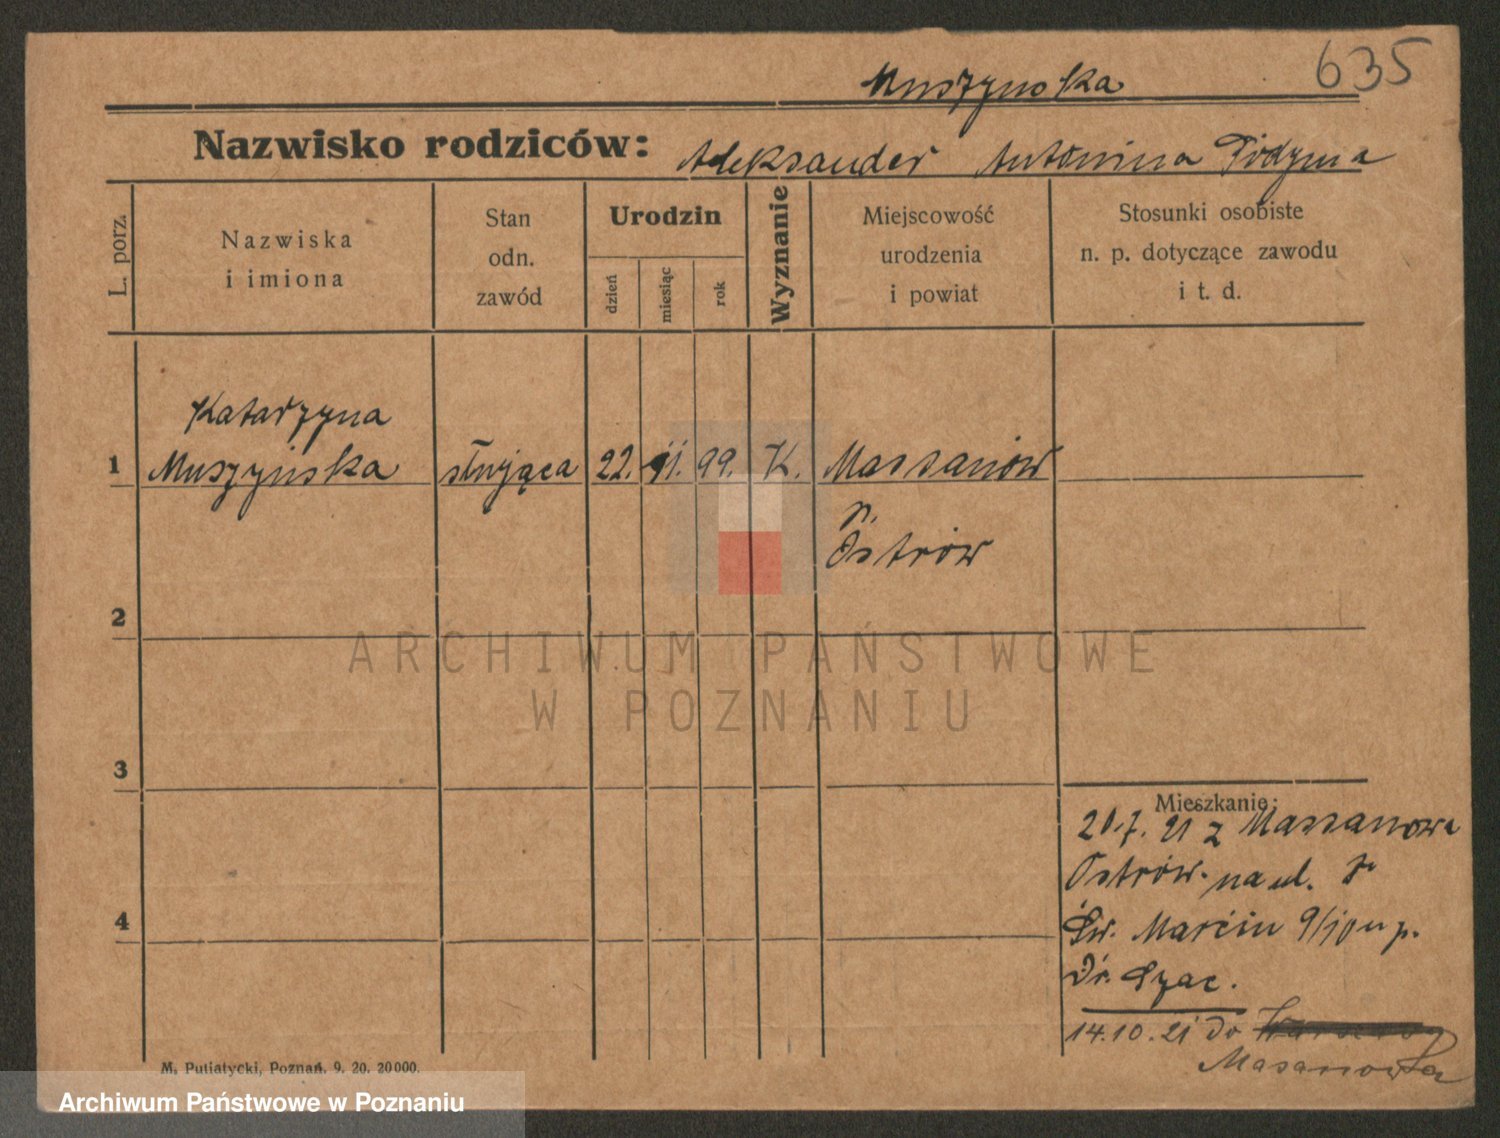 635
Muszynska
Nazwisko rodziców: Aleksander Antonina
L. porz.
Nazwiska
i imiona
Stan
odn.
zawód
Urodzin
dzień
miesiąc
rok
Wyznanie
Miejscowość
urodzenia
i powiat
Stosunki osobiste
n. p. dotyczące zawodu
i t. d.
Katarzyna
1 Muszyńska służąca 22. 11. 99. K. Massanów
p.
Ostrów
2
3
4
Mieszkanie:
20.7.21 z Massanowa
Ostrów. na ul.
Św. Marcin 9/10 u p.
Dr. Szac.
14.10.21 do
Masanowa
M. Putiatycki, Poznań. 9. 20. 20000.
ARCHIWUM PAŃSTWOWE
W POZNANIU
Archiwum Państwowe w Poznaniu